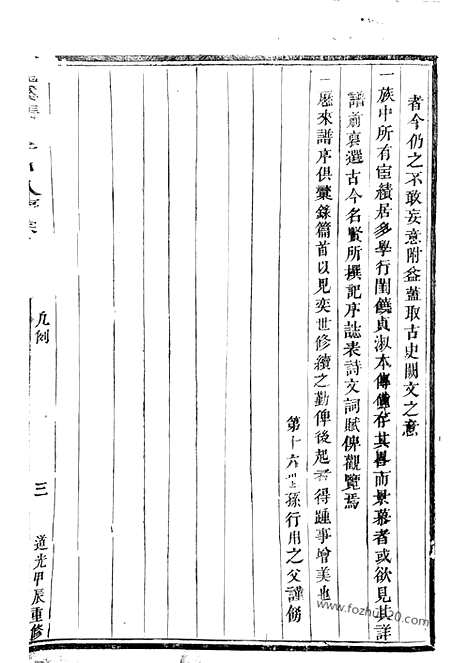 者今仍之不敢妄意附益蓋取古史闕文之意
一族中所有宦績居多學行閨饒貞淑本傳僅存其畧而景慕者或欲見其詳
譜前裒選古今名賢所撰記序誌表詩文詞賦俾觀覽焉
一歷來譜序俱彙錄篇首以見奕世修續之勤俾後起者得踵事增美也
第十六世孫行用之父謹飭
凡例
三
道光甲辰重修
www.fozhu920.com